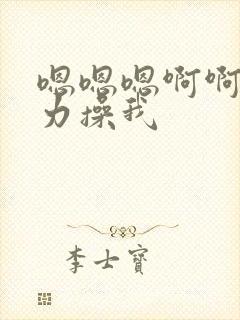 嗯嗯嗯啊啊
力操我
李士寶